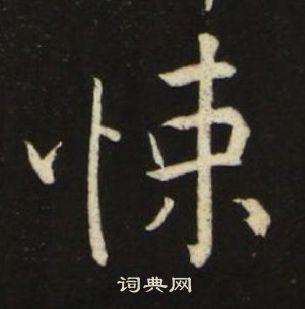 悚
词典网